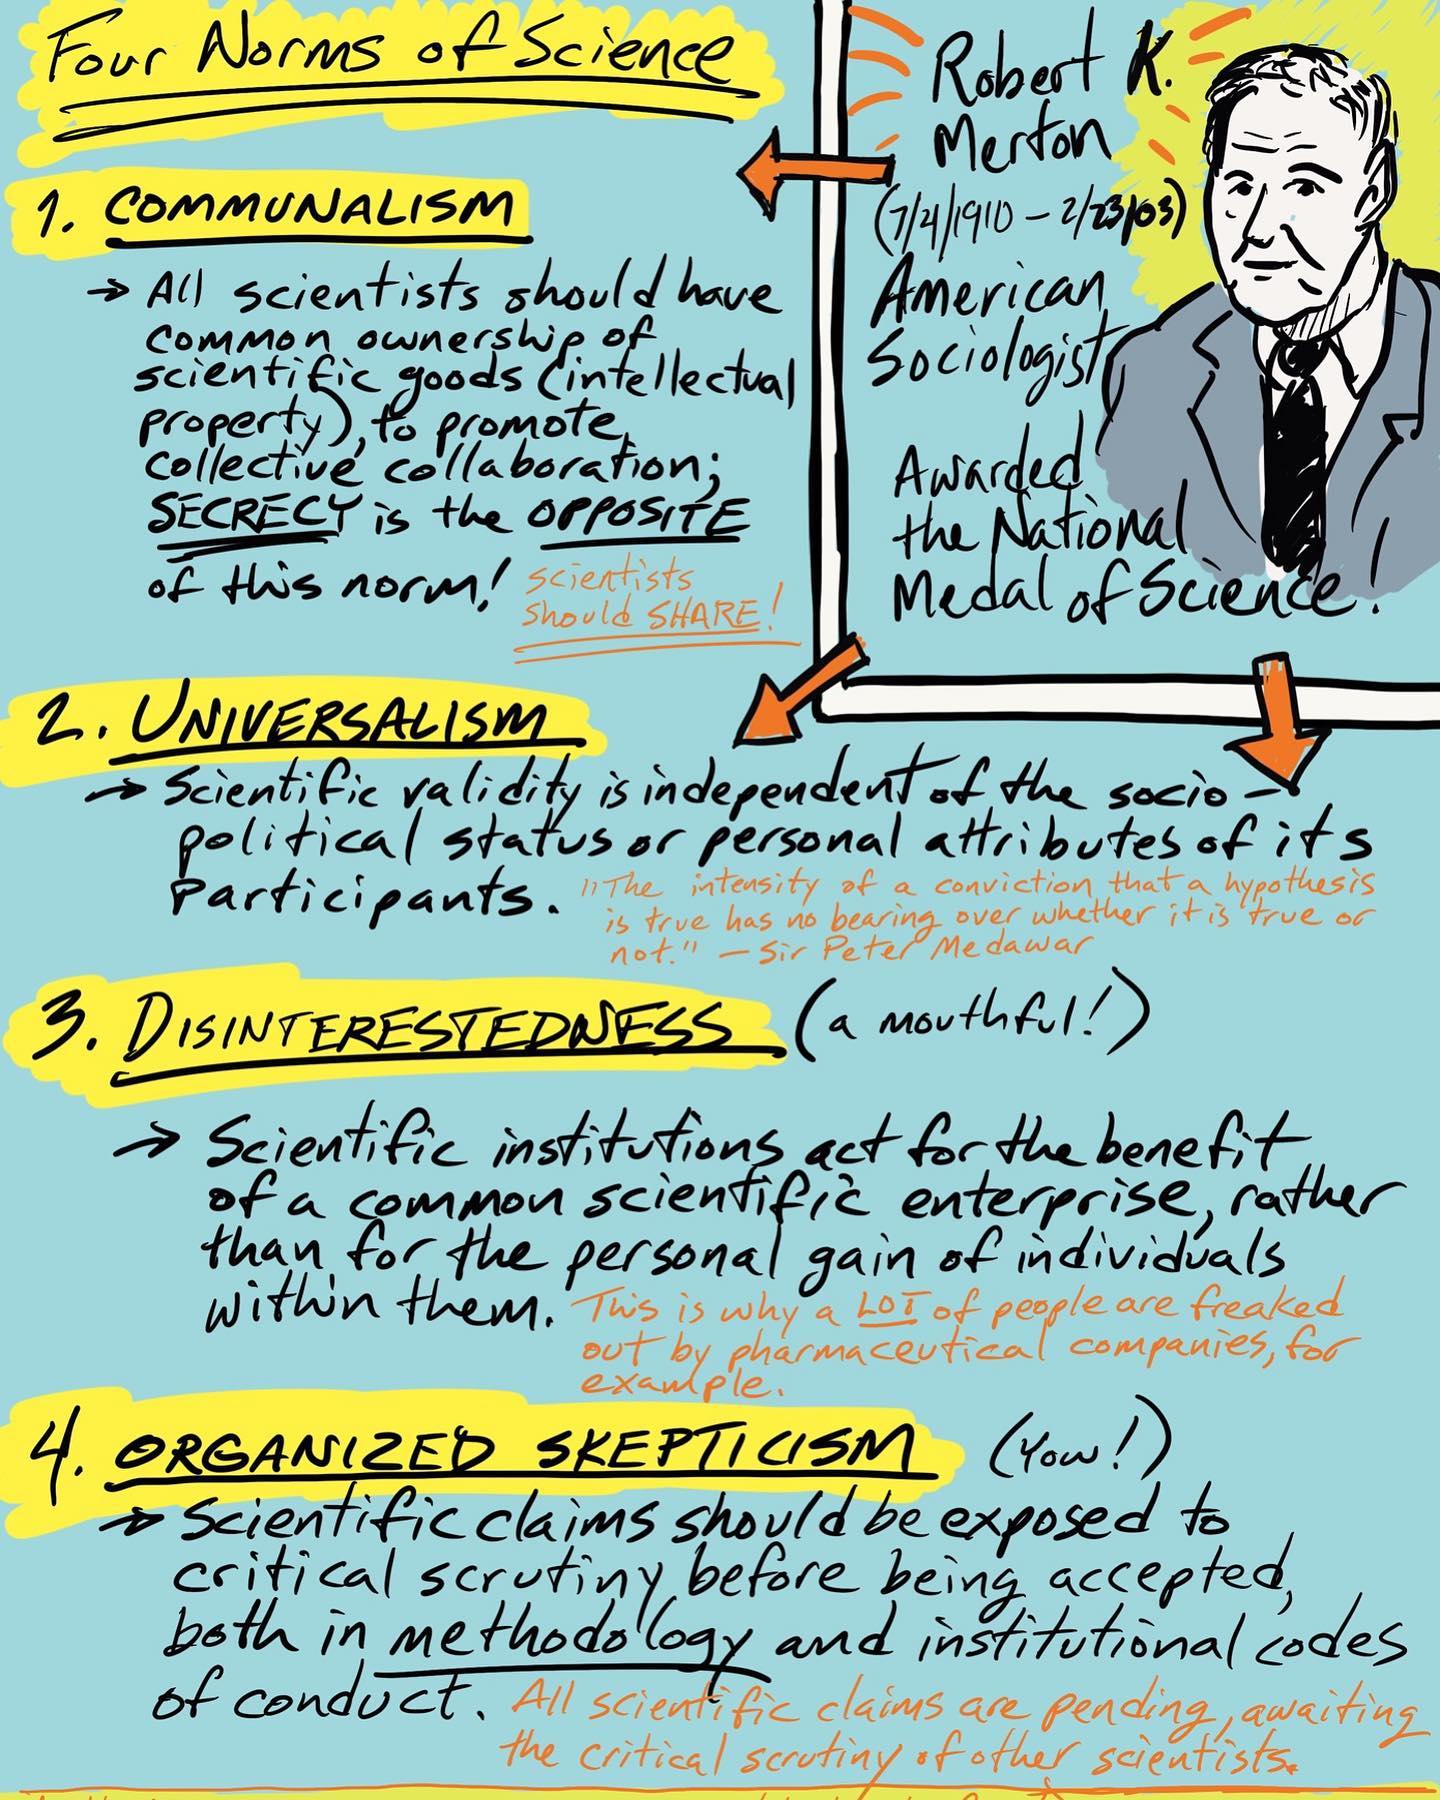 Four Norms of Science
Robert K.
Merton
(7/4/1910 – 2/23/03)
American
Sociologist
Awarded
the National
Medal of Science!
1. COMMUNALISM
→ All scientists should have
common ownership of
scientific goods (intellectual
property), to promote
collective collaboration;
SECRECY is the OPPOSITE
of this norm!
scientists
should SHARE!
2. UNIVERSALISM
→ Scientific validity is independent of the socio-
political status or personal attributes of its
participants.
"The intensity of a conviction that a hypothesis
is true has no bearing over whether it is true or
not." – Sir Peter Medawar
3. DISINTERESTEDNESS (a mouthful!)
→ Scientific institutions act for the benefit
of a common scientific enterprise, rather
than for the personal gain of individuals
within them.
This is why a LOT of people are freaked
out by pharmaceutical companies, for
example.
4. ORGANIZED SKEPTICISM (Yow!)
→ Scientific claims should be exposed to
critical scrutiny before being accepted,
both in methodology and institutional codes
of conduct.
All scientific claims are pending, awaiting
the critical scrutiny of other scientists.